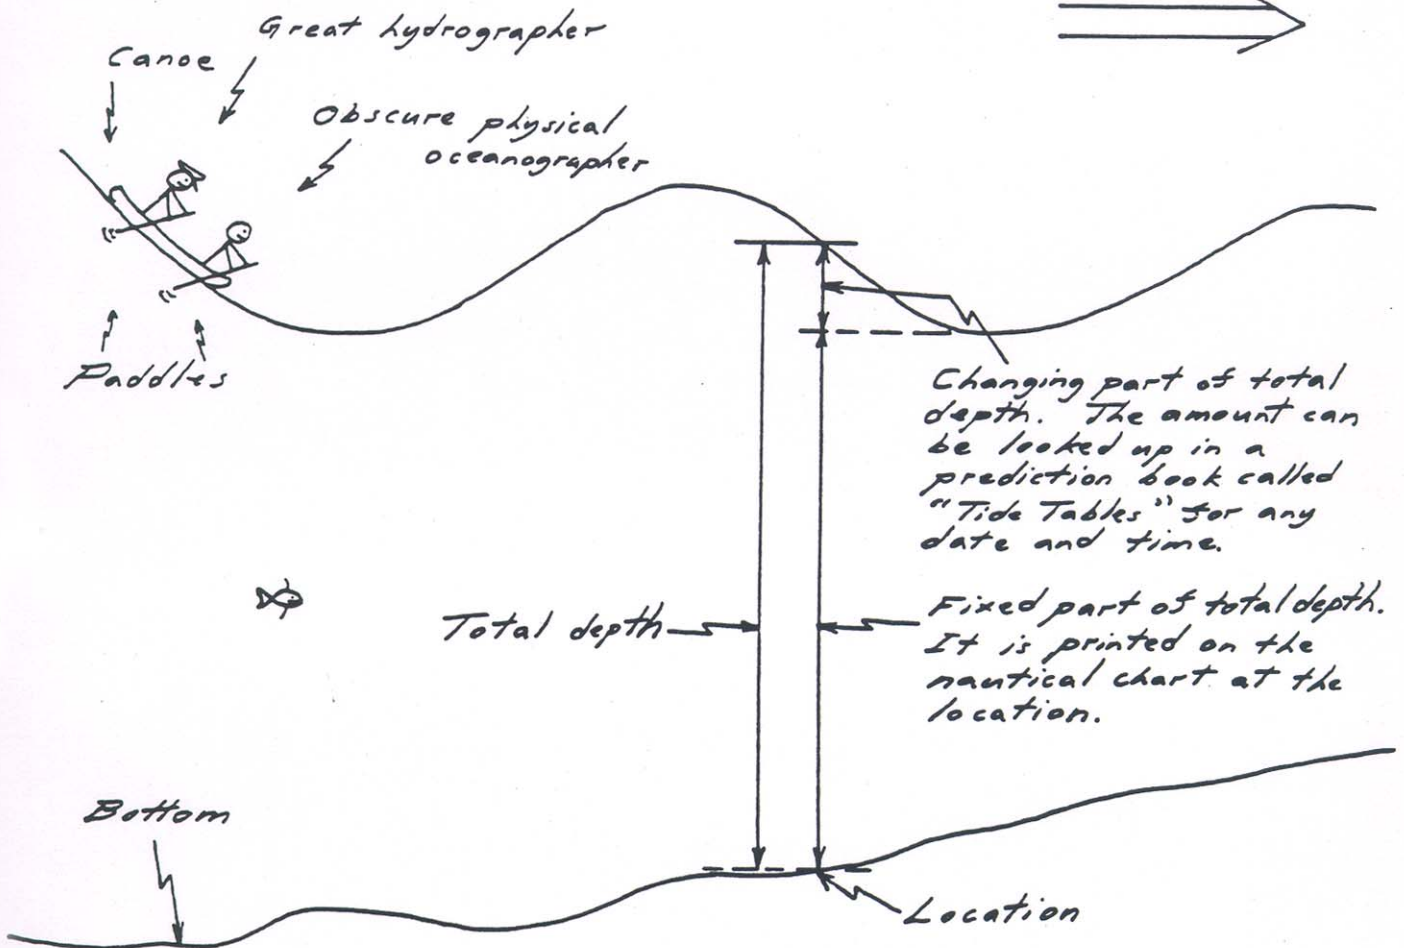 Great hydrographer
Canoe
Obscure physical
oceanographer
Paddles
Changing part of total
depth. The amount can
be looked up in a
prediction book called
"Tide Tables" for any
date and time.
Total depth
Fixed part of total depth.
It is printed on the
nautical chart at the
location.
Bottom
Location